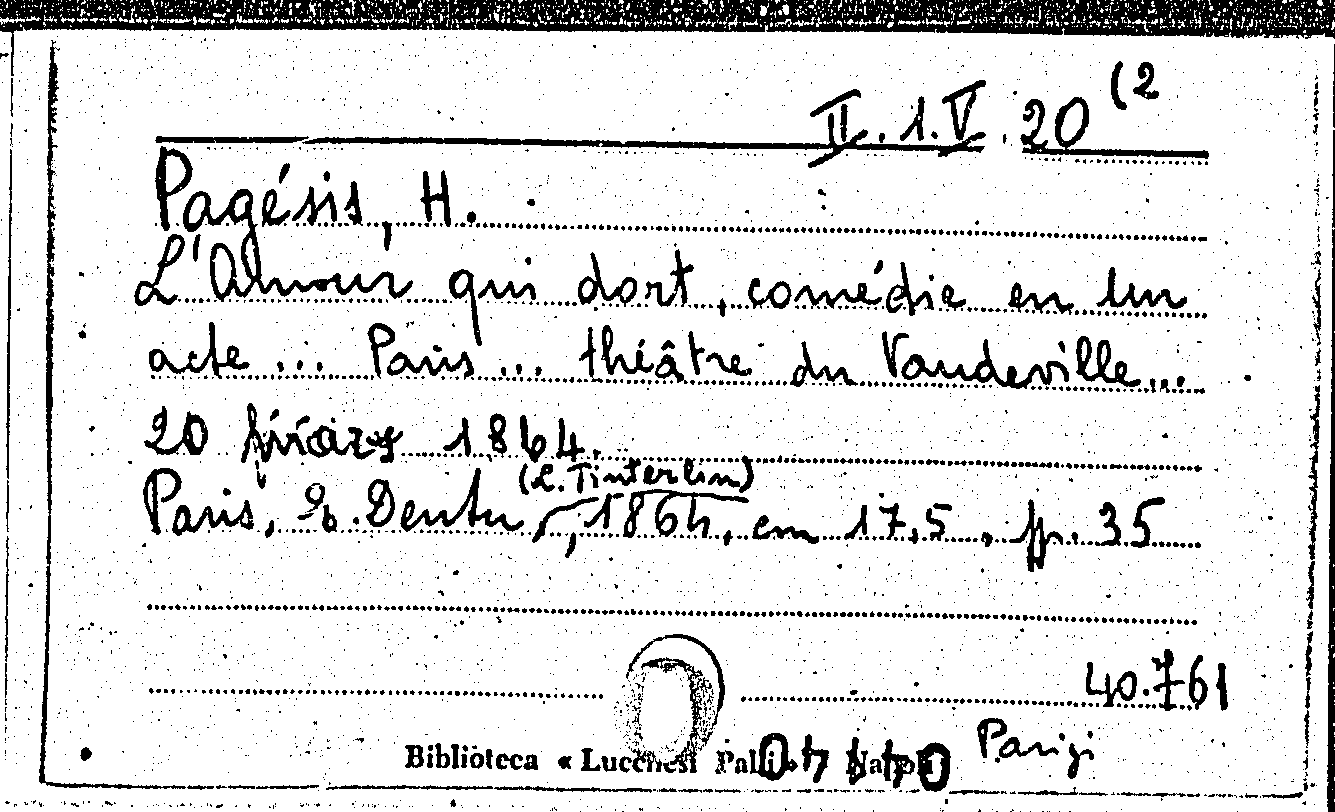 II.1.V.20 (2
Pagésis, H.
L'Amour qui dort, comédie en un
acte... Paris... théâtre du Vaudeville...
20 1864.
(L. Tinterlin)
Paris, E. Dentu, 1864, cm 17,5, pp. 35
40.761
Parigi
Biblioteca « Lucchesi Palli »